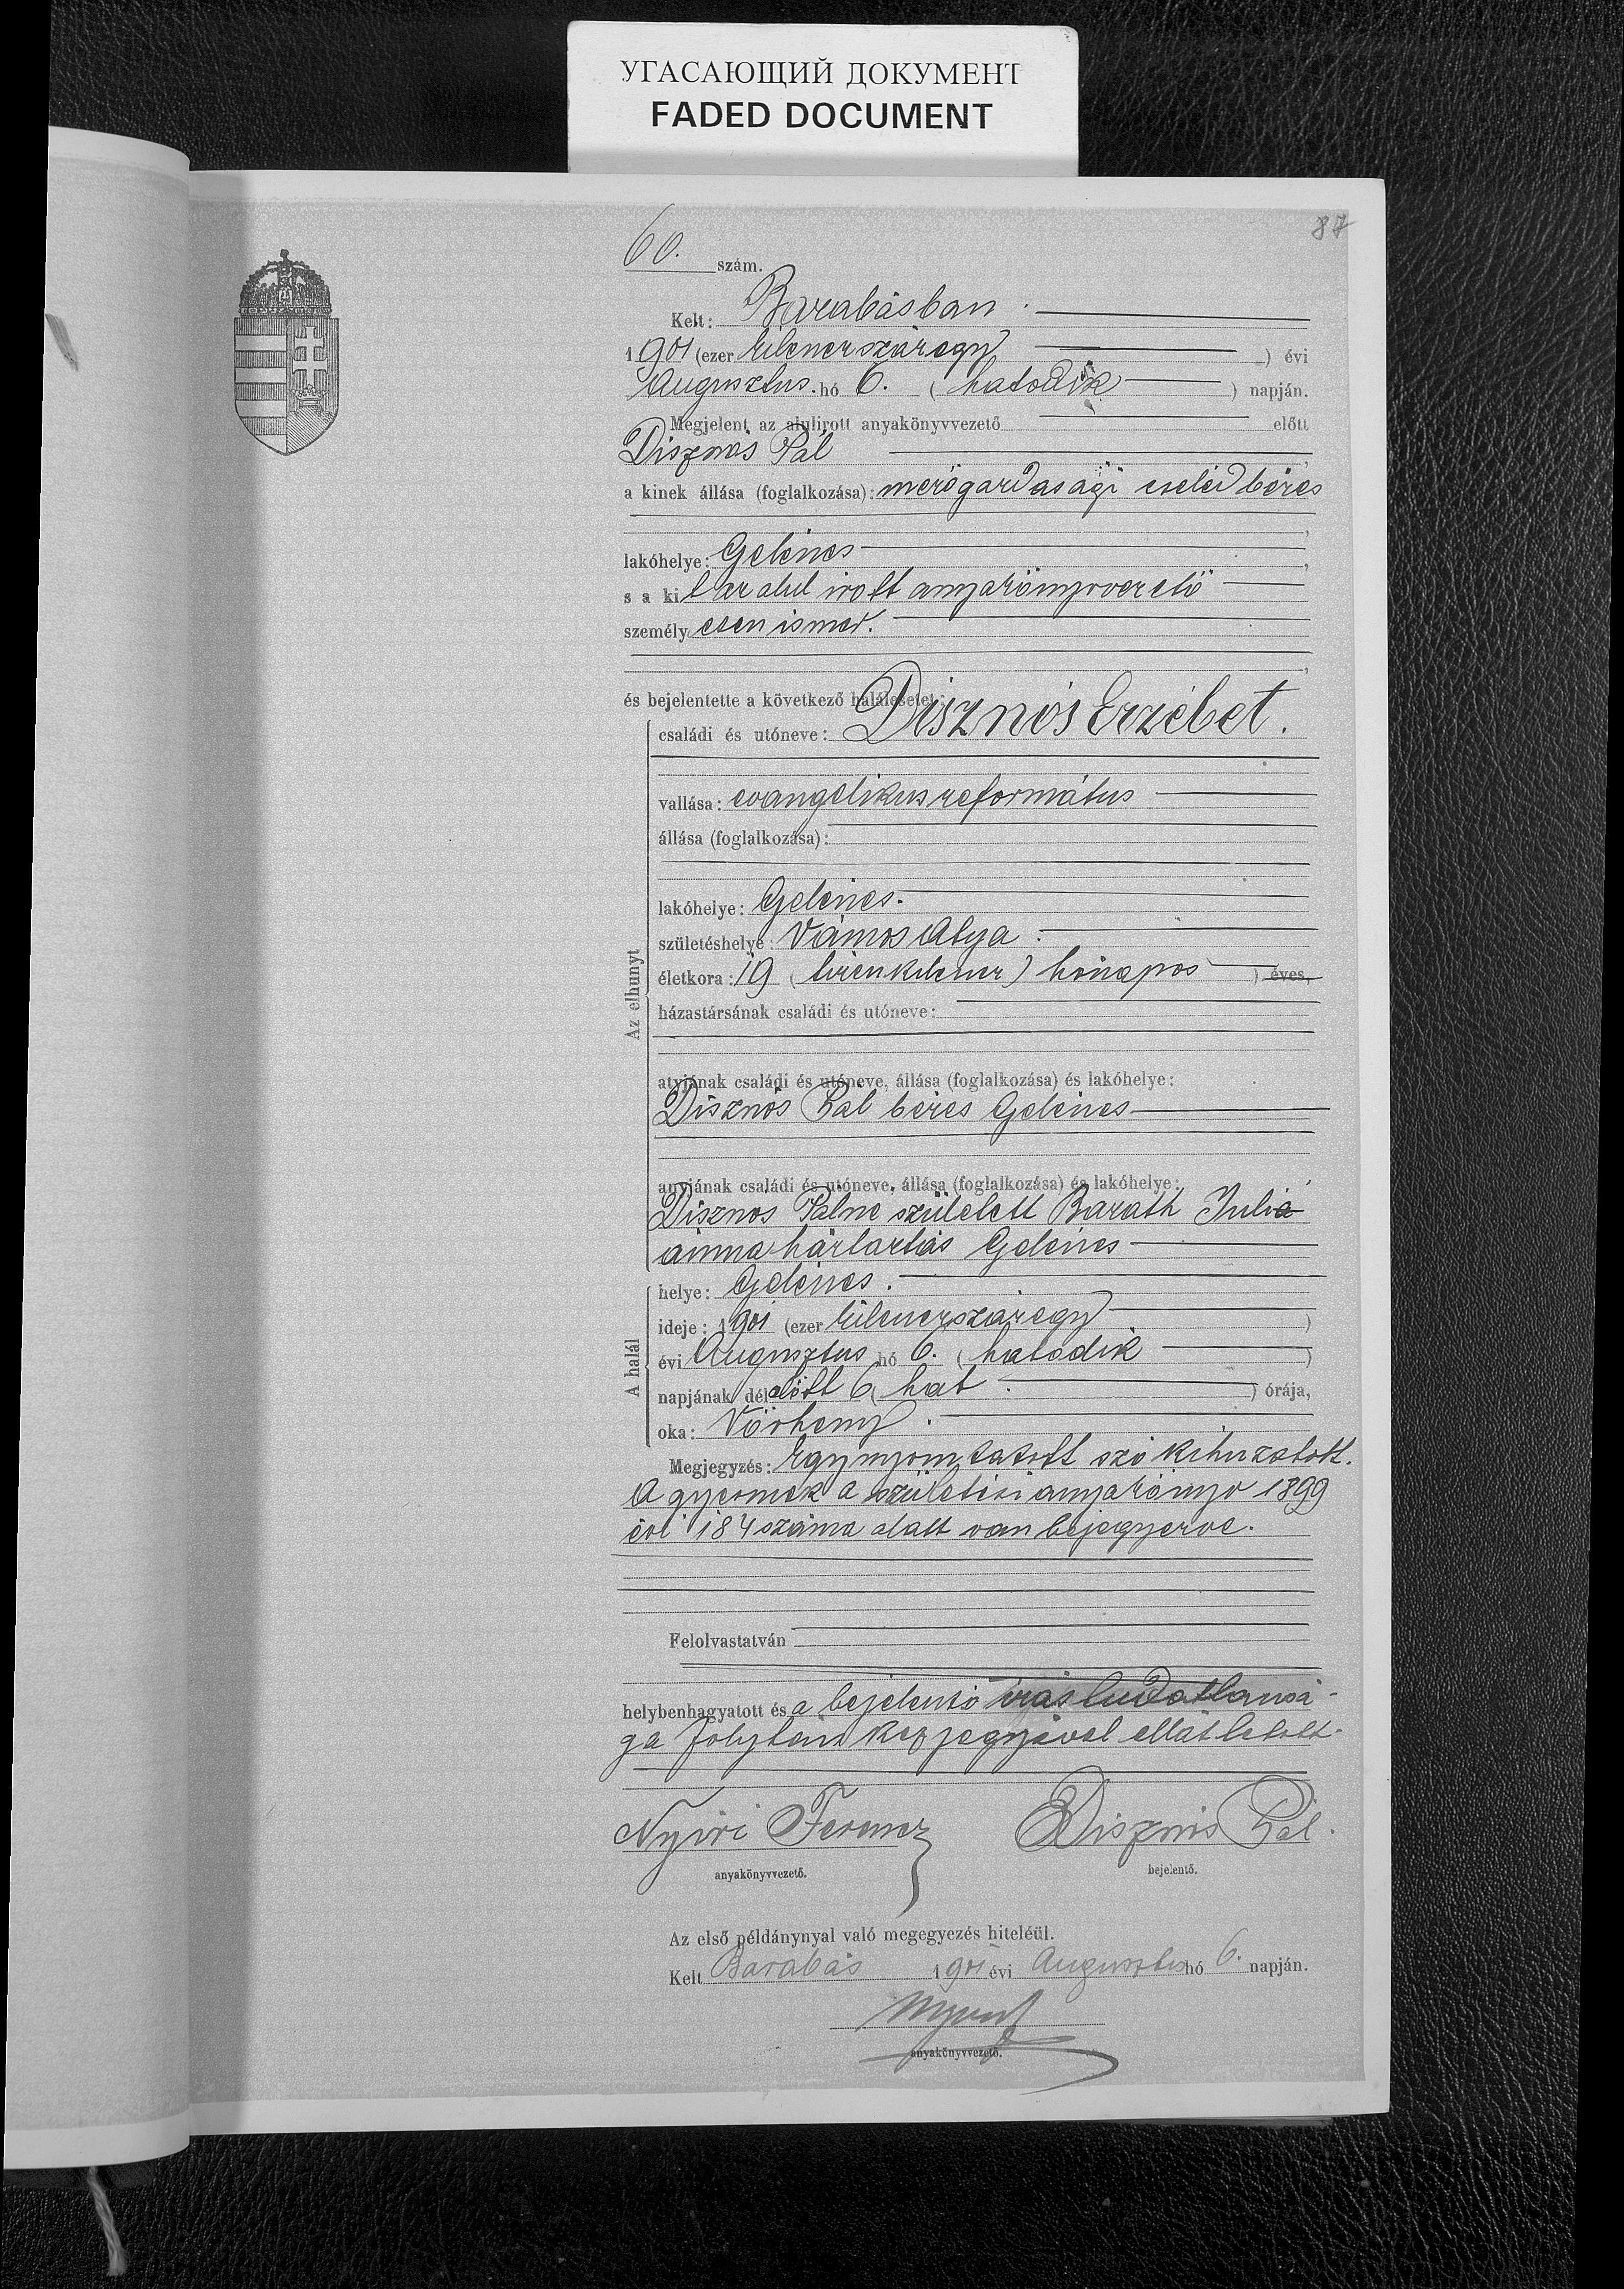 УГАСАЮЩИЙ ДОКУМЕНТ
FADED DOCUMENT
87
60. szám.
Kelt: Barabásban
1901 (ezer kilenczszázegy) évi
Augusztus hó 6. (hatodik) napján.
Megjelent az alulirott anyakönyvvezető előtt
Disznós Pál
a kinek állása (foglalkozása): mezőgazdasági cseléd béres
lakóhelye: Gelénes
s a kit az alul irott anyakönyvvezető
személyesen ismer.
és bejelentette a következő halálesetet:
Az elhunyt
családi és utóneve: Disznós Erzébet.
vallása: evangelikus református
állása (foglalkozása):
lakóhelye: Gelénes.
születéshelye: Vámos Atya
életkora: 19 (tizenkilencz) hónapos ) éves,
házastársának családi és utóneve:
atyjának családi és utóneve, állása (foglalkozása) és lakóhelye:
Disznós Pál béres Gelénes
anyjának családi és utóneve, állása (foglalkozása) és lakóhelye:
Disznós Pálné született Baráth Juliá
ánna háztartás Gelénes
A halál
helye: Gelénes.
ideje: 1901 (ezer kilenczszázegy)
évi Augusztus hó 6. (hatodik)
napjának délelőtt 6 (hat) órája,
oka: Vörheny
Megjegyzés: Egy nyomtatott szó kihuzatott.
A gyermek a születési anyakönyv 1899
évi 184 száma alatt van bejegyezve.
Felolvastatván
helybenhagyatott és a bejelentő irástudatlansá-
ga folytán kézjegyével elláttatott.
Nyiri Ferencz Disznós Pál.
anyakönyvvezető. bejelentő.
Az első példánynyal való megegyezés hiteléül.
Kelt Barabás 1901 évi Augusztus hó 6. napján.
anyakönyvvezető.